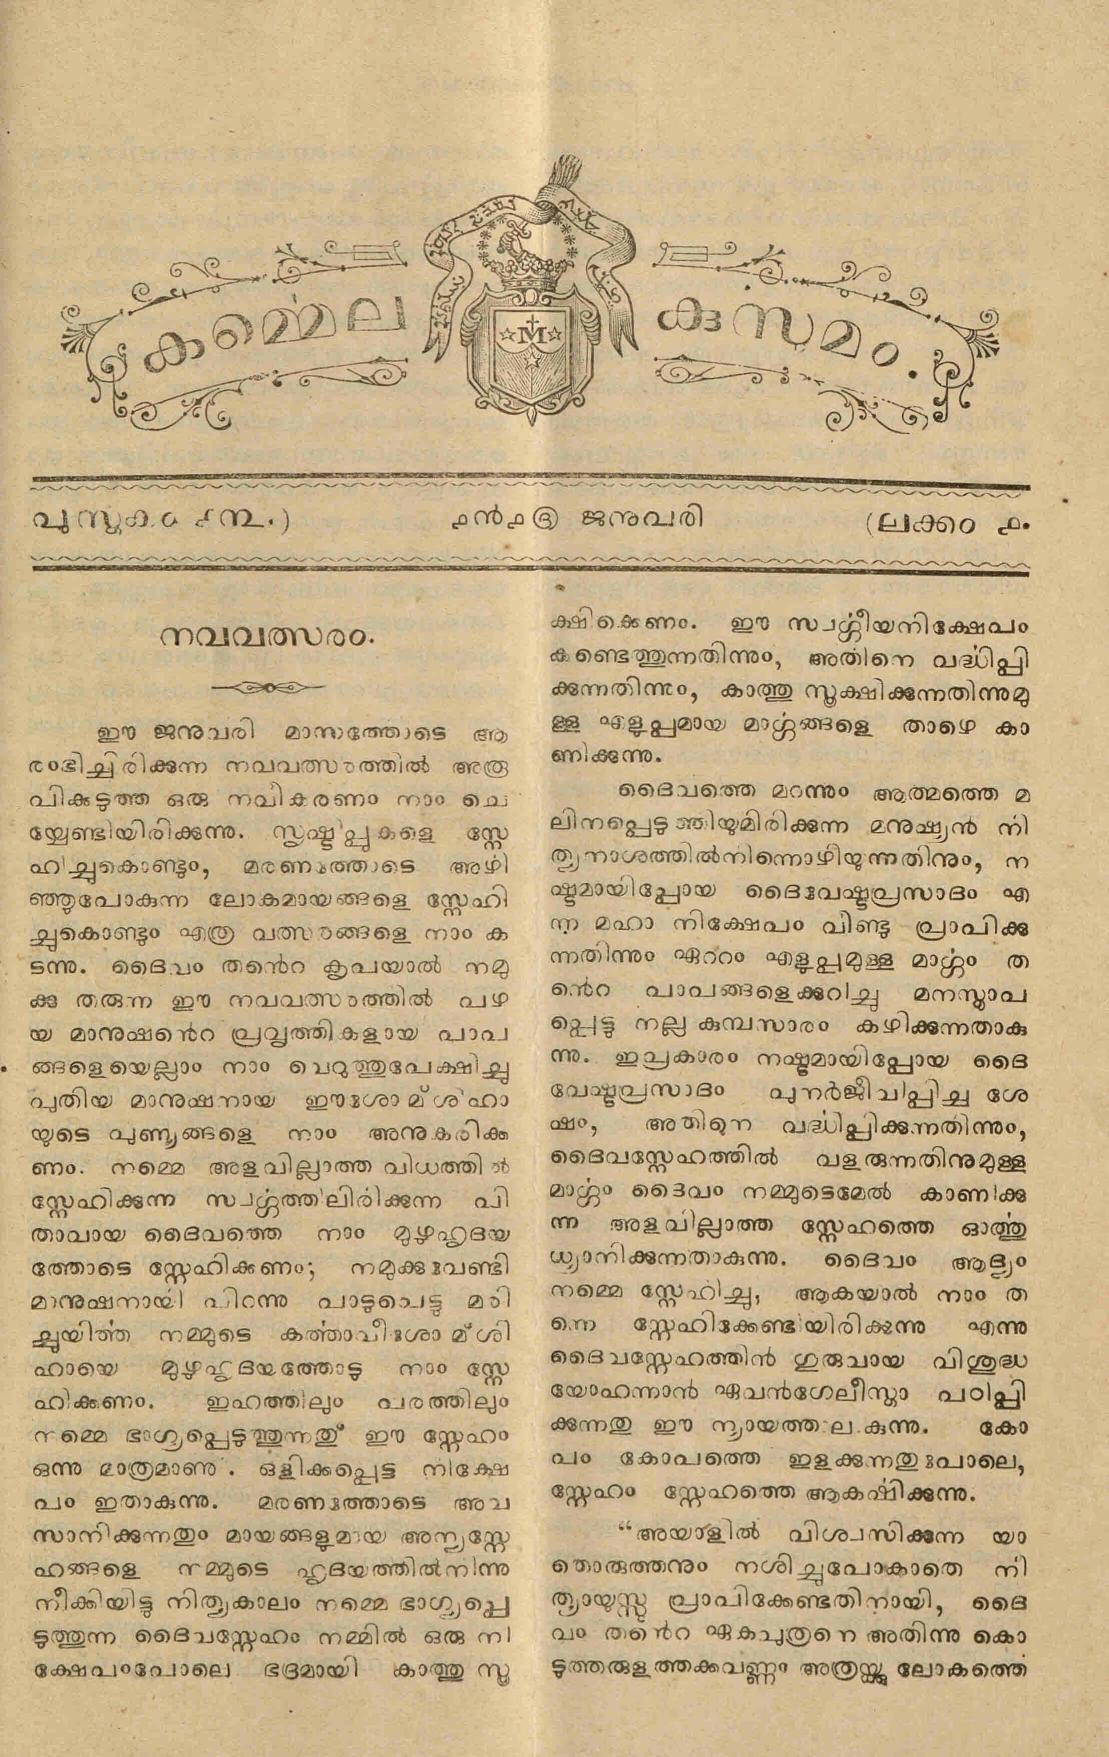 കൎമ്മെല കുസുമം.
൧൯൧൫ ജനുവരി
(ലക്കം ൧.
നവവത്സരം.
ഈ ജനുവരി മാസത്തോടെ ആ
രംഭിച്ചിരിക്കുന്ന നവവത്സരത്തിൽ അരൂ
വികടുത്ത ഒരു നവികരണം നാം ചെ
യ്യേണ്ടിയിരിക്കുന്നു. സൃഷ്ടിപ്പുകളെ സ്നേ
ഹിച്ചുകൊണ്ടും, മരണത്തോടെ അഴി
ഞ്ഞുപോകുന്ന ലോകമായങ്ങളെ സ്നേഹി
ച്ചുകൊണ്ടും എത്ര വത്സരങ്ങളെ നാം ക
ടന്നു. ദൈവം തന്റെ കൃപയാൽ നമു
ക്കു തരുന്ന ഈ നവവത്സരത്തിൽ പഴ
യ മാനുഷന്റെ പ്രവൃത്തികളായ പാപ
ങ്ങളെയെല്ലാം നാം വെറുത്തുപേക്ഷിച്ചു
പുതിയ മാനുഷനായ ഈശോമ്ശിഹാ
യുടെ പുണ്യങ്ങളെ നാം അനുകരിക്ക
ണം. നമ്മെ അളവില്ലാത്ത വിധത്തിൽ
സ്നേഹിക്കുന്ന സ്വൎഗ്ഗത്തിലിരിക്കുന്ന പി
താവായ ദൈവത്തെ നാം മുഴുഹൃദയ
ത്തോടെ സ്നേഹിക്കണം; നമുക്കുവേണ്ടി
മാനുഷനായി പിറന്നു പാടുപെട്ടു മരി
ച്ചുയിൎത്ത നമ്മുടെ കൎത്താവീശോമ്ശി
ഹായെ മുഴുഹൃദയത്തോടു നാം സ്നേ
ഹിക്കണം. ഇഹത്തിലും പരത്തിലും
നമ്മെ ഭാഗ്യപ്പെടുത്തുന്നതു് ഈ സ്നേഹം
ഒന്നു മാത്രമാണു്. ഒളിക്കപ്പെട്ട നിക്ഷേ
പം ഇതാകുന്നു. മരണത്തോടെ അവ
സാനിക്കുന്നതും മായങ്ങളുമായ അന്യസ്നേ
ഹങ്ങളെ നമ്മുടെ ഹൃദയത്തിൽനിന്നു
നീക്കിയിട്ടു നിത്യകാലം നമ്മെ ഭാഗ്യപ്പെ
ടുത്തുന്ന ദൈവസ്നേഹം നമ്മിൽ ഒരു നി
ക്ഷേപംപോലെ ഭദ്രമായി കാത്തു സൂ
ക്ഷിക്കെണം. ഈ സ്വൎഗ്ഗീയനിക്ഷേപം
കണ്ടെത്തുന്നതിന്നും, അതിനെ വൎദ്ധിപ്പി
ക്കുന്നതിന്നും, കാത്തു സൂക്ഷിക്കുന്നതിന്നുമു
ള്ള എളുപ്പമായ മാൎഗ്ഗങ്ങളെ താഴെ കാ
ണിക്കുന്നു.
ദൈവത്തെ മറന്നും ആത്മത്തെ മ
ലിനപ്പെടുത്തിയുമിരിക്കുന്ന മനുഷ്യൻ നി
ത്യനാശത്തിൽനിന്നൊഴിയുന്നതിനും, ന
ഷ്ടമായിപ്പോയ ദൈവേഷ്ടപ്രസാദം എ
ന്ന മഹാ നിക്ഷേപം വീണ്ടു പ്രാപിക്കു
ന്നതിന്നും ഏററം എളുപ്പമുള്ള മാൎഗ്ഗം ത
ന്റെ പാപങ്ങളെക്കുറിച്ചു മനസ്താപ
പ്പെട്ടു നല്ല കുമ്പസാരം കഴിക്കുന്നതാകു
ന്നു. ഇപ്രകാരം നഷ്ടമായിപ്പോയ ദൈ
വേഷ്ടപ്രസാദം പുനർജീവിപ്പിച്ച ശേ
ഷം, അതിനെ വൎദ്ധിപ്പിക്കുന്നതിന്നും,
ദൈവസ്നേഹത്തിൽ വളരുന്നതിനുമുള്ള
മാൎഗ്ഗം ദൈവം നമ്മുടെമേൽ കാണിക്കു
ന്ന അളവില്ലാത്ത സ്നേഹത്തെ ഓൎത്തു
ധ്യാനിക്കുന്നതാകുന്നു. ദൈവം ആദ്യം
നമ്മെ സ്നേഹിച്ചു, ആകയാൽ നാം ത
ന്നെ സ്നേഹിക്കേണ്ടിയിരിക്കുന്നു എന്നു
ദൈവസ്നേഹത്തിൻ ഗുരുവായ വിശുദ്ധ
യോഹന്നാൻ ഏവൻഗേലീസ്താ പഠിപ്പി
ക്കുന്നതു ഈ ന്യായത്താലകുന്നു. കോ
പം കോപത്തെ ഇളക്കുന്നതുപോലെ,
സ്നേഹം സ്നേഹത്തെ ആകൎഷിക്കുന്നു.
“അയാളിൽ വിശ്വസിക്കുന്ന യാ
തൊരുത്തനും നശിച്ചുപോകാതെ നി
ത്യായുസ്സു പ്രാപിക്കേണ്ടതിനായി, ദൈ
വം തന്റെ ഏകപുത്രനെ അതിന്നു കൊ
ടുത്തരുളത്തക്കവണ്ണം അത്രയ്ക്കു ലോകത്തെ